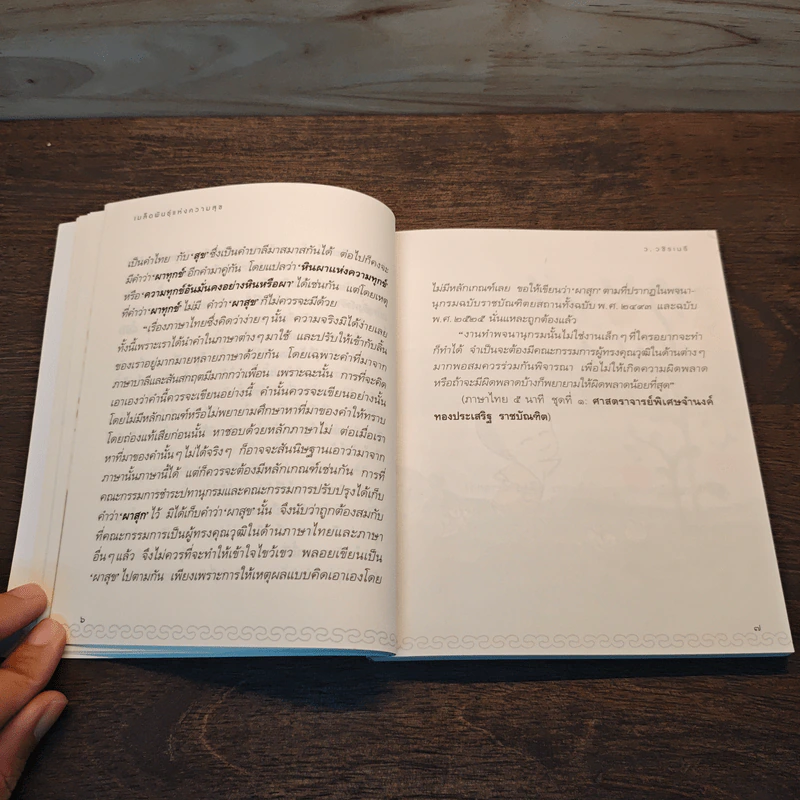 เมล็ดพันธุ์แห่งความสุข
เป็นคำไทย กับ 'สุข' ซึ่งเป็นคำบาลีมาสมาสกันได้ ต่อไปก็คงจะ
มีคำว่า 'ผาทุกข์' อีกคำมาคู่กัน โดยแปลว่า 'หินผาแห่งความทุกข์'
หรือ 'ความทุกข์อันมั่นคงอย่างหินหรือผา' ได้เช่นกัน แต่โดยเหตุ
ที่คำว่า 'ผาทุกข์' ไม่มี คำว่า 'ผาสุข' ก็ไม่ควรจะมีด้วย
"เรื่องภาษาไทยซึ่งคิดว่าง่ายๆ นั้น ความจริงมิได้ง่ายเลย
ทั้งนี้เพราะเราได้นำคำในภาษาต่างๆ มาใช้ และปรับให้เข้ากับลิ้น
ของเราอยู่มากมายหลายภาษาด้วยกัน โดยเฉพาะคำที่มาจาก
ภาษาบาลีและสันสกฤตมีมากกว่าเพื่อน เพราะฉะนั้น การที่จะคิด
เอาเองว่าคำนี้ควรจะเขียนอย่างนี้ คำนั้นควรจะเขียนอย่างนั้น
โดยไม่มีหลักเกณฑ์หรือไม่พยายามศึกษาหาที่มาของคำให้ทราบ
โดยถ่องแท้เสียก่อนนั้น หาชอบด้วยหลักภาษาไม่ ต่อเมื่อเรา
หาที่มาของคำนั้นๆ ไม่ได้จริงๆ ก็อาจจะสันนิษฐานเอาว่ามาจาก
ภาษานั้นภาษานี้ได้ แต่ก็ควรจะต้องมีหลักเกณฑ์เช่นกัน การที่
คณะกรรมการชำระปทานุกรมและคณะกรรมการปรับปรุงได้เก็บ
คำว่า 'ผาสุก' ไว้ มิได้เก็บคำว่า 'ผาสุข' นั้น จึงนับว่าถูกต้องสมกับ
ที่คณะกรรมการเป็นผู้ทรงคุณวุฒิในด้านภาษาไทยและภาษา
อื่นๆ แล้ว จึงไม่ควรที่จะทำให้เข้าใจไขว้เขว พลอยเขียนเป็น
'ผาสุข' ไปตามกัน เพียงเพราะการให้เหตุผลแบบคิดเอาเองโดย
๖
ว.วชิรเมธี
ไม่มีหลักเกณฑ์เลย ขอให้เขียนว่า 'ผาสุก' ตามที่ปรากฏในพจนา-
นุกรมฉบับราชบัณฑิตยสถานทั้งฉบับ พ.ศ. ๒๔๙๓ และฉบับ
พ.ศ. ๒๕๒๕ นั่นแหละถูกต้องแล้ว
"งานทำพจนานุกรมนั้นไม่ใช่งานเล็กๆ ที่ใครอยากจะทำ
ก็ทำได้ จำเป็นจะต้องมีคณะกรรมการผู้ทรงคุณวุฒิในด้านต่างๆ
มากพอสมควรร่วมกันพิจารณา เพื่อไม่ให้เกิดความผิดพลาด
หรือถ้าจะมีผิดพลาดบ้างก็พยายามให้ผิดพลาดน้อยที่สุด"
(ภาษาไทย ๕ นาที ชุดที่ ๑: ศาสตราจารย์พิเศษจำนงค์
ทองประเสริฐ ราชบัณฑิต)
๗